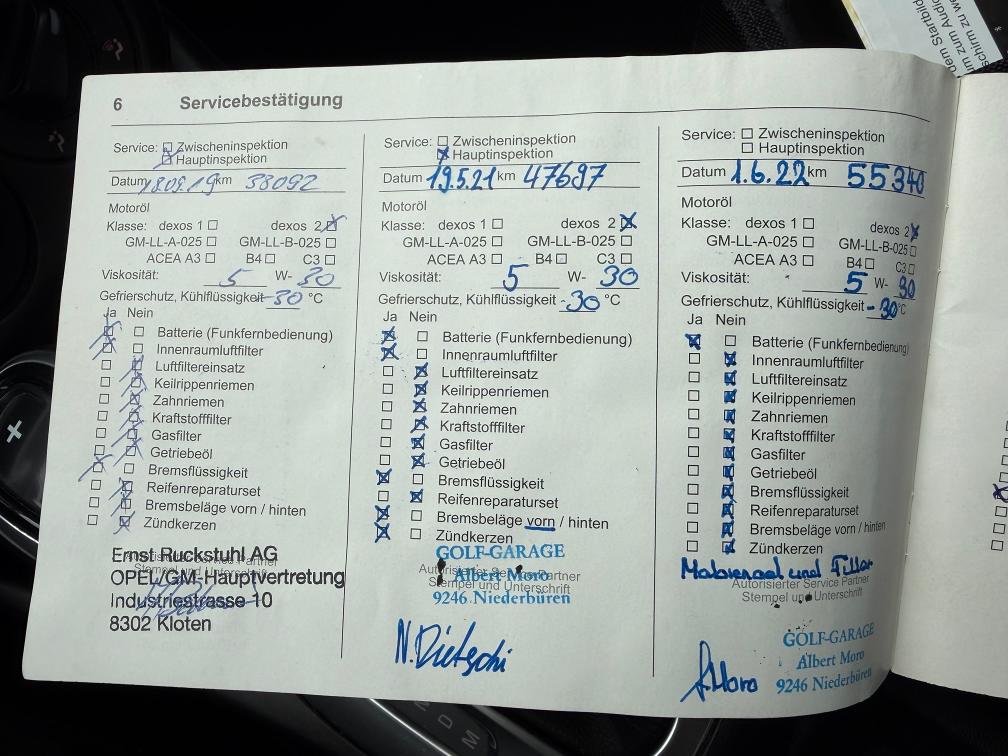 6 Servicebestätigung
Service: ☐ Zwischeninspektion
☒ Hauptinspektion
Datum 18.09.19 km 38092
Motoröl
Klasse: dexos 1 ☐ dexos 2 ☒
GM-LL-A-025 ☐ GM-LL-B-025 ☐
ACEA A3 ☐ B4 ☐ C3 ☐
Viskosität: 5 W- 30
Gefrierschutz, Kühlflüssigkeit -30 °C
Ja Nein
☒ ☐ Batterie (Funkfernbedienung)
☒ ☐ Innenraumluftfilter
☐ ☒ Luftfiltereinsatz
☐ ☒ Keilrippenriemen
☐ ☒ Zahnriemen
☐ ☒ Kraftstofffilter
☐ ☒ Gasfilter
☐ ☒ Getriebeöl
☒ ☐ Bremsflüssigkeit
☐ ☒ Reifenreparaturset
☐ ☒ Bremsbeläge vorn / hinten
☐ ☒ Zündkerzen
Autorisierter Service Partner
Stempel und Unterschrift
Ernst Ruckstuhl AG
OPEL/GM-Hauptvertretung
Industriestrasse 10
8302 Kloten
Service: ☐ Zwischeninspektion
☒ Hauptinspektion
Datum 19.5.21 km 47697
Motoröl
Klasse: dexos 1 ☐ dexos 2 ☒
GM-LL-A-025 ☐ GM-LL-B-025 ☐
ACEA A3 ☐ B4 ☐ C3 ☐
Viskosität: 5 W- 30
Gefrierschutz, Kühlflüssigkeit -30 °C
Ja Nein
☒ ☐ Batterie (Funkfernbedienung)
☒ ☐ Innenraumluftfilter
☐ ☒ Luftfiltereinsatz
☐ ☒ Keilrippenriemen
☐ ☒ Zahnriemen
☐ ☒ Kraftstofffilter
☐ ☒ Gasfilter
☐ ☒ Getriebeöl
☒ ☐ Bremsflüssigkeit
☐ ☒ Reifenreparaturset
☒ ☐ Bremsbeläge vorn / hinten
☒ ☐ Zündkerzen
Autorisierter Service Partner
Stempel und Unterschrift
GOLF-GARAGE
Albert Moro
9246 Niederbüren
N. Dietschi
Service: ☐ Zwischeninspektion
☐ Hauptinspektion
Datum 1.6.22 km 55340
Motoröl
Klasse: dexos 1 ☐ dexos 2 ☒
GM-LL-A-025 ☐ GM-LL-B-025 ☐
ACEA A3 ☐ B4 ☐ C3 ☐
Viskosität: 5 W- 30
Gefrierschutz, Kühlflüssigkeit -30 °C
Ja Nein
☒ ☐ Batterie (Funkfernbedienung)
☐ ☒ Innenraumluftfilter
☐ ☒ Luftfiltereinsatz
☐ ☒ Keilrippenriemen
☐ ☒ Zahnriemen
☐ ☒ Kraftstofffilter
☐ ☒ Gasfilter
☐ ☒ Getriebeöl
☐ ☒ Bremsflüssigkeit
☐ ☒ Reifenreparaturset
☐ ☒ Bremsbeläge vorn / hinten
☐ ☒ Zündkerzen
Motorenoel und Filter
Autorisierter Service Partner
Stempel und Unterschrift
GOLF-GARAGE
Albert Moro
9246 Niederbüren
A. Moro
dem Startbild
um zum Audio
schirm zu we
D
M